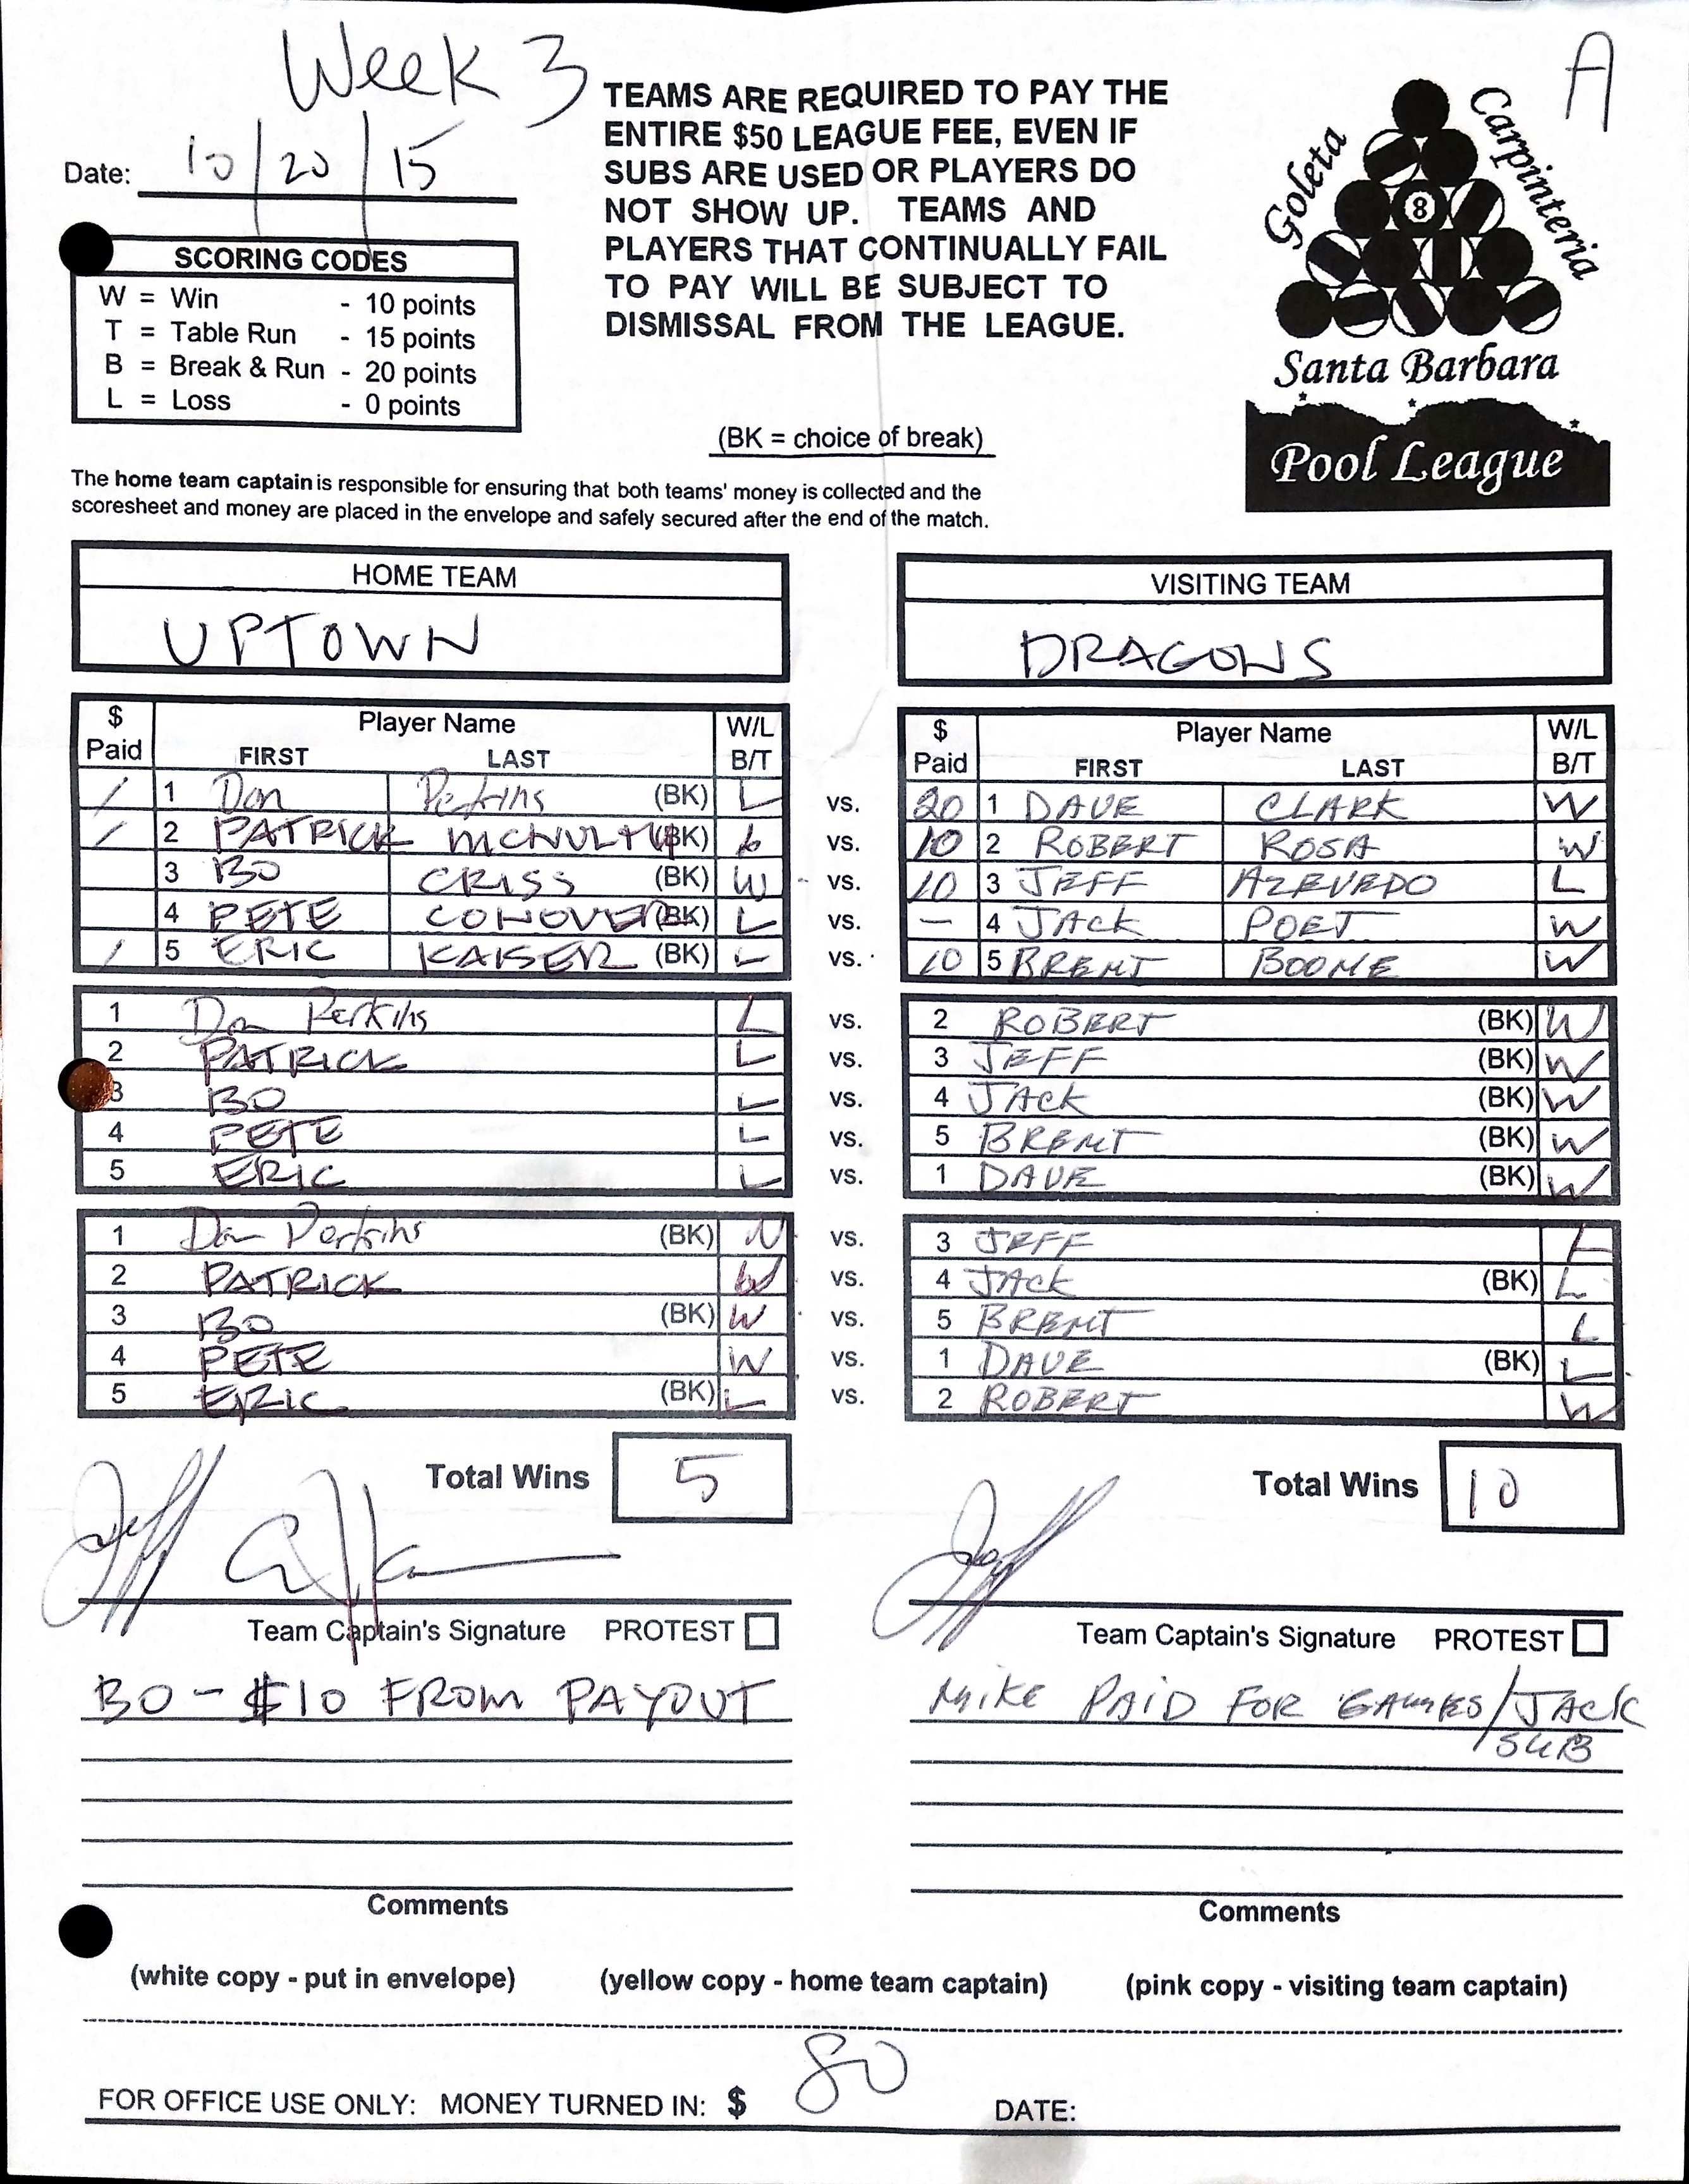 Week 3
A
Date: 10/20/15
TEAMS ARE REQUIRED TO PAY THE
ENTIRE $50 LEAGUE FEE, EVEN IF
SUBS ARE USED OR PLAYERS DO
NOT SHOW UP. TEAMS AND
PLAYERS THAT CONTINUALLY FAIL
TO PAY WILL BE SUBJECT TO
DISMISSAL FROM THE LEAGUE.
Goleta
Carpinteria
8
Santa Barbara
Pool League
SCORING CODES
W = Win - 10 points
T = Table Run - 15 points
B = Break & Run - 20 points
L = Loss - 0 points
(BK = choice of break)
The home team captain is responsible for ensuring that both teams' money is collected and the
scoresheet and money are placed in the envelope and safely secured after the end of the match.
HOME TEAM VISITING TEAM
UPTOWN DRAGONS
$ Paid Player Name FIRST LAST W/L B/T $ Paid Player Name FIRST LAST W/L B/T
/ 1 Don Perkins (BK) L vs. 20 1 DAVE CLARK W
/ 2 PATRICK MCNULTY (BK) L vs. 10 2 ROBERT ROSA W
3 BO CRISS (BK) W vs. 10 3 JEFF AZEVEDO L
4 PETE CONOVER (BK) L vs. — 4 JACK POET W
/ 5 ERIC KAISER (BK) L vs. 10 5 BRENT BOONE W
1 Don Perkins L vs. 2 ROBERT (BK) W
2 PATRICK L vs. 3 JEFF (BK) W
3 BO L vs. 4 JACK (BK) W
4 PETE L vs. 5 BRENT (BK) W
5 ERIC L vs. 1 DAVE (BK) W
1 Don Perkins (BK) W vs. 3 JEFF L
2 PATRICK W vs. 4 JACK (BK) L
3 BO (BK) W vs. 5 BRENT L
4 PETE W vs. 1 DAVE (BK) L
5 ERIC (BK) L vs. 2 ROBERT W
Total Wins 5 Total Wins 10
Jeff
Team Captain's Signature PROTEST Team Captain's Signature PROTEST
BO - $10 FROM PAYOUT
MIKE PAID FOR GAMES/JACK
SUB
Comments Comments
(white copy - put in envelope) (yellow copy - home team captain) (pink copy - visiting team captain)
FOR OFFICE USE ONLY: MONEY TURNED IN: $ 80 DATE: